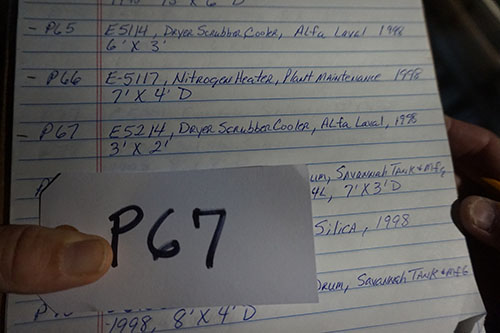 - P65 E5114, Dryer Scrubber Cooler, Alfa Laval 1998
6' X 3'
- P66 E-5117, Nitrogen Heater, Plant Maintenance 1998
7' X 4' D
- P67 E5214, Dryer Scrubber Cooler, Alfa Laval, 1998
3' X 2'
um, Savannah Tank & Mfg
4L, 7' X 3' D
P67
Silica, 1998
Drum, Savannah Tank & Mfg
1998, 8' X 4' D